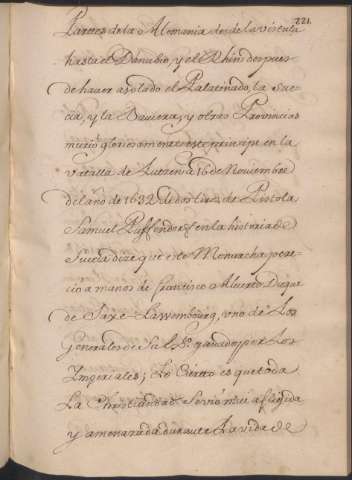 221.
Partes de la Alemania desde la vistula
hasta el Danubio, y el Rhin despues
de haver asolado el Palatinado, la Sue-
cia, y la Baviera, y otras Provincias
murio gloriosamente este principe en la
vatalla de Lutzen a 16 de Noviembre
del año de 1632 de dos tiros de Pistola,
Samuel Puffendorf en la historia de
Suecia dize que este Monarcha pere-
cio a manos de francisco Alverto Duque
de Saxe-Lawemburg, uno de Los
Generales de Su ganado por Los
Ymperiales; Lo Cierto es que toda
La Christiandad Se vio mui afligida
y amenazada durante La vida de